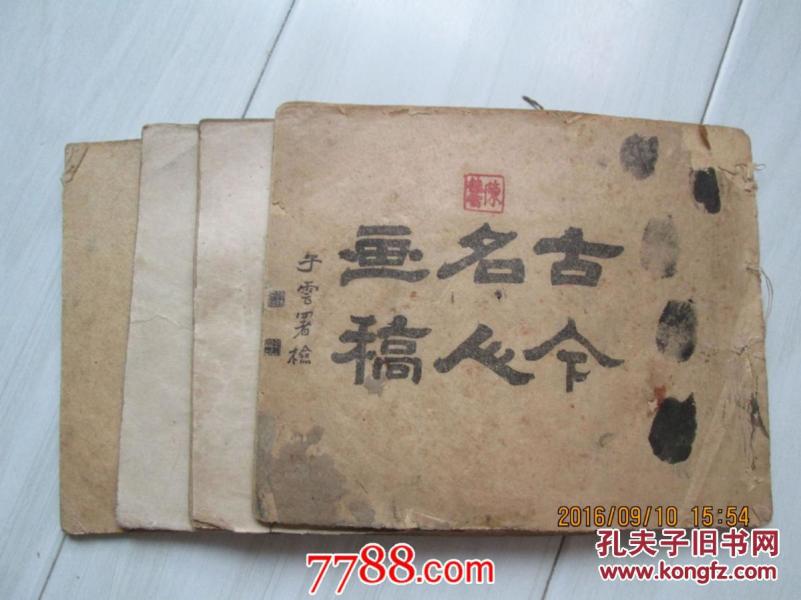 古今
名人
画稿
午雲署檢
陳
2016/09/10 15:54
孔夫子旧书网
www.kongfz.com
7788.com